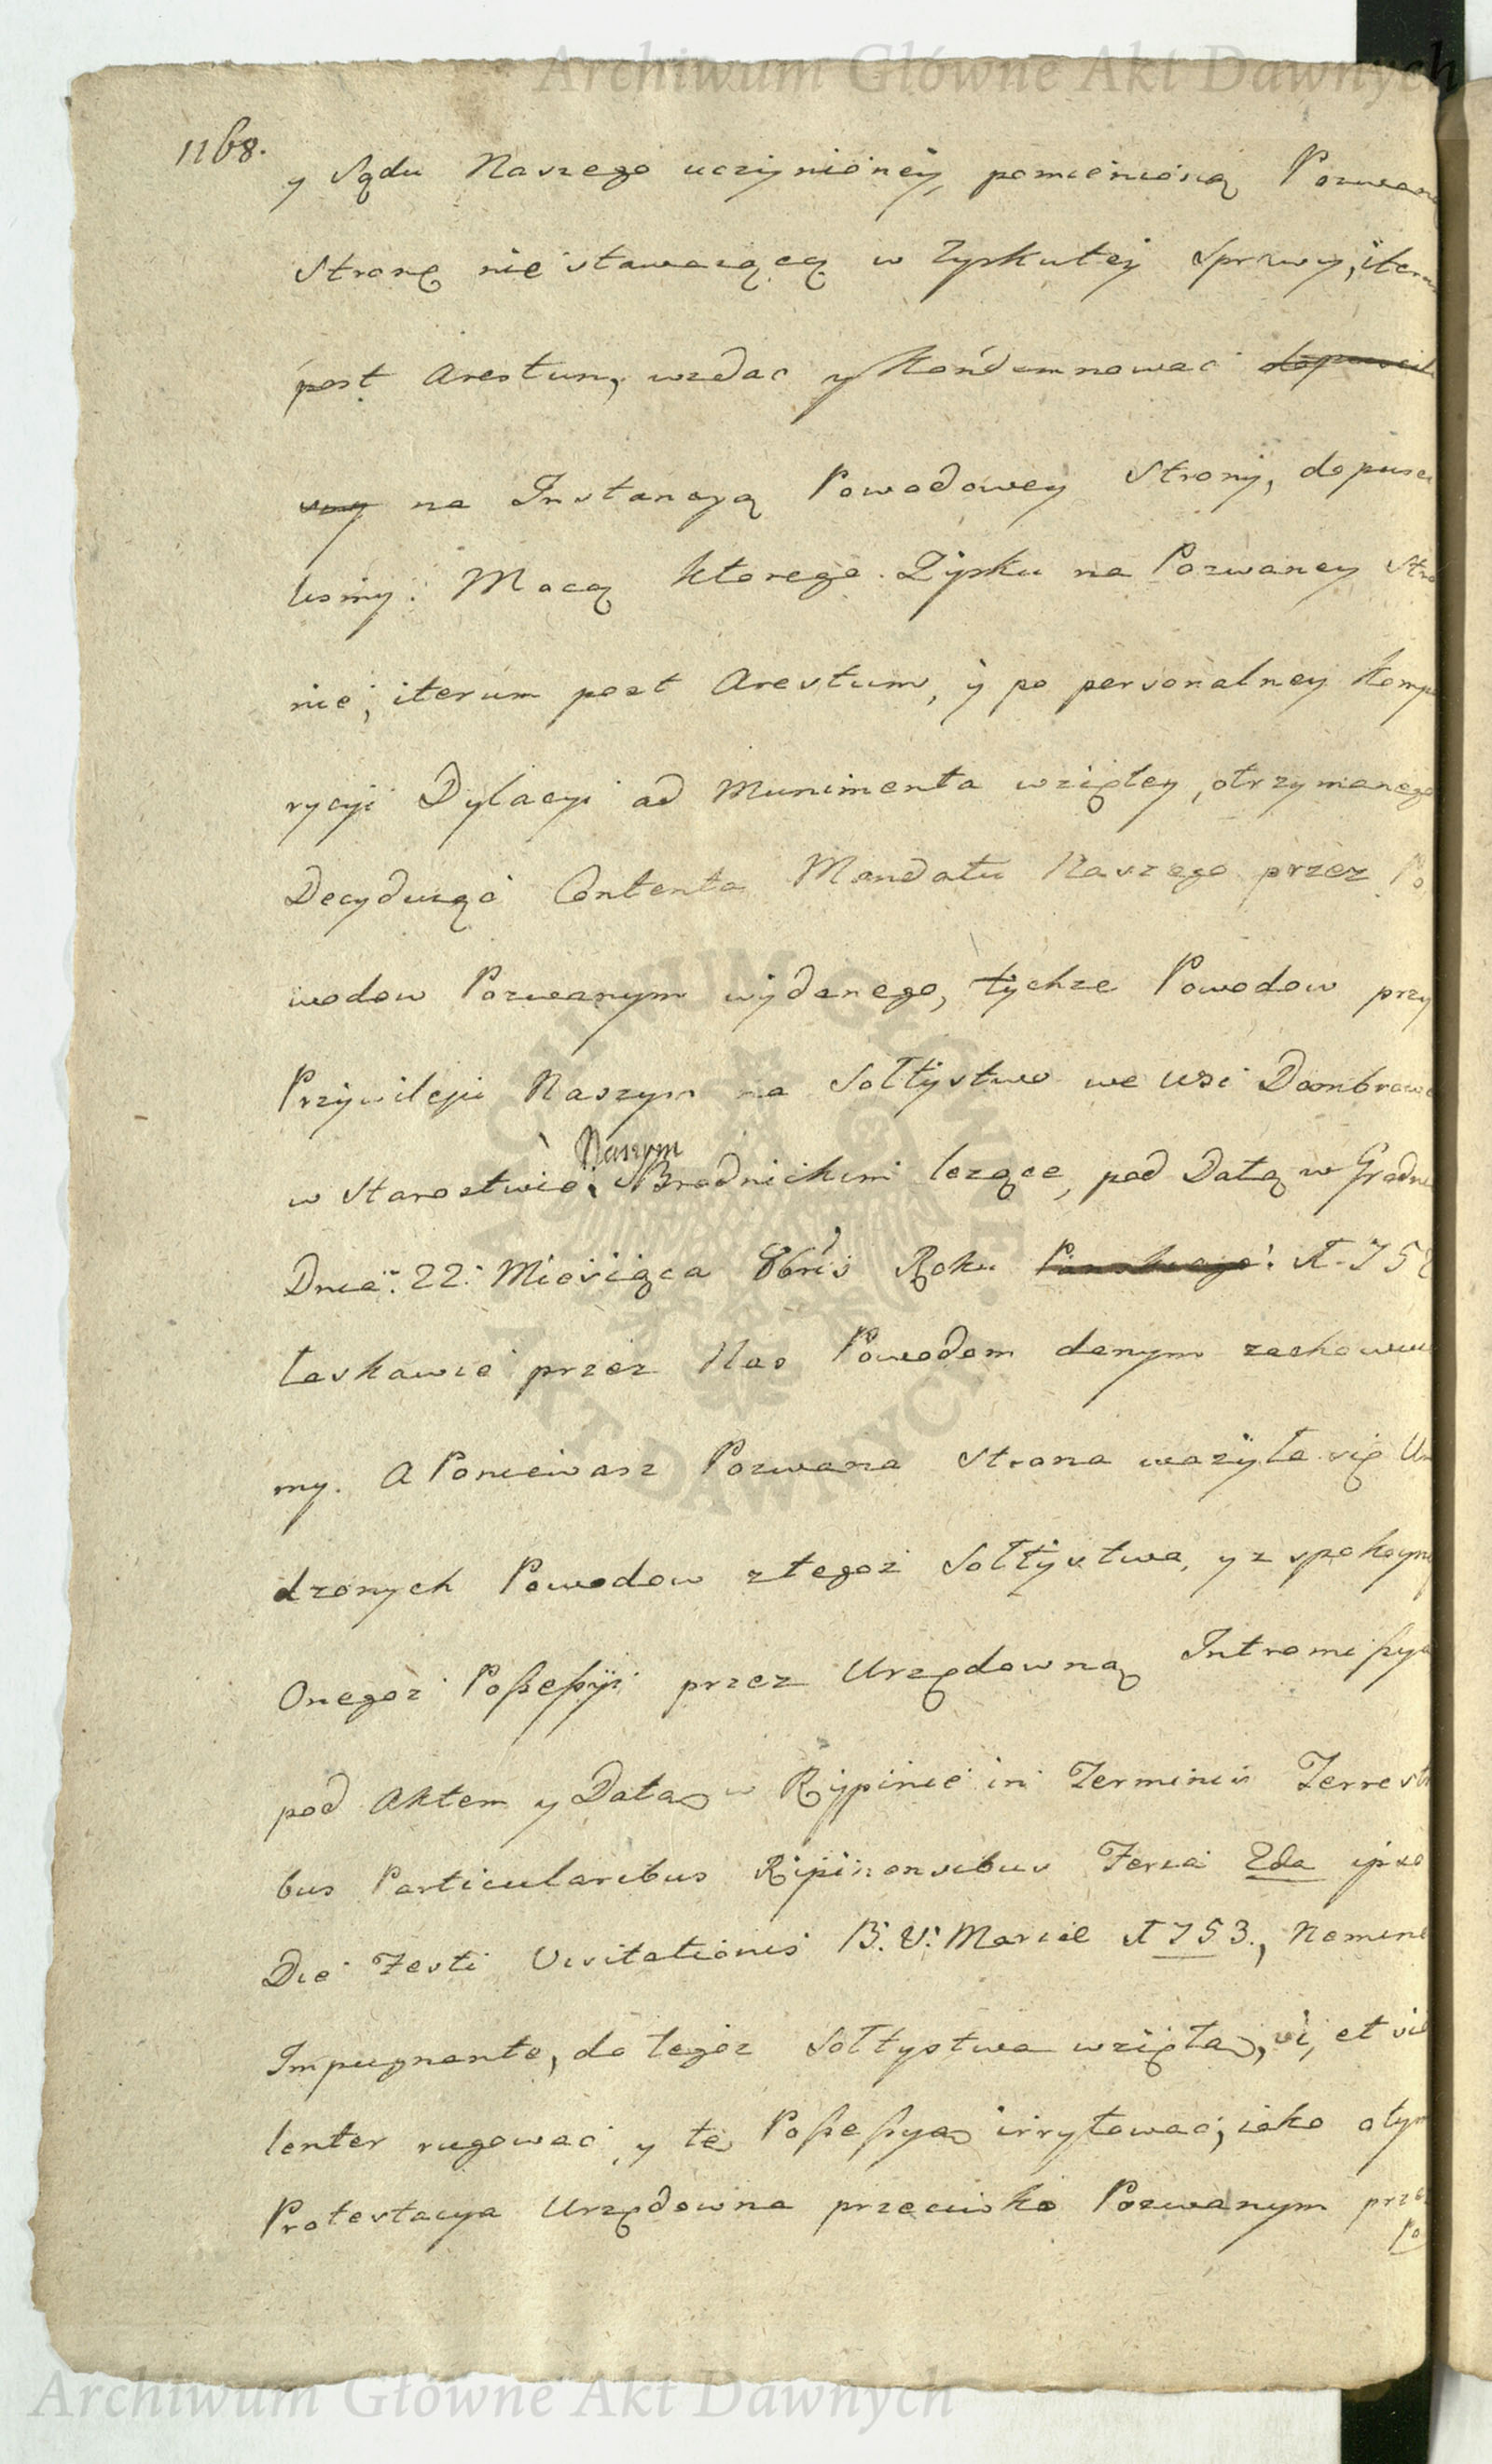 Archiwum Główne Akt Dawnych
1168.
y Sądu Naszego uczynióney, pomieniósią Pozwaną
Stronę nie stawaiącą w Zysku tey Sprawy, iteru
post Arestum, wzdać y kondemnować dopuscili
smy na Instancyą Powodowey Strony, dopusci
lismy. Mocą ktorego Zysku na Pozwaney Stro
nie, iterum post Arestum, y po personalney kompa
rycyi Dylacyi ad Munimenta wziętey, otrzymanego
Decyduiąc Contenta Mandatu Naszego przez Po
wodow Pozwanym wydanego, tychze Powodow przy
Przywileju Naszym na Sołtystwo we Wsi Dombrowc
Naszym
w Starostwie Brodnickim lezące, pod Datą w Grodni
Dnia 22. Miesiąca 8bris Roku Panskiego 175
łaskawie przez Nas Powodom danym zachowuie
my. A Poniewasz Pozwana Strona wazyła się Uro
dzonych Powodow z tegoz Sołtystwa, y z spokoyney
Onegoz Possessyi przez Urzędowną Intromissyą
pod Aktem y Datą w Rypinie in Terminis Terrestri
bus Particularibus Ripinensibus Feria 2da ipso
Die Festi Visitationis B. V. Mariae 1753., Nemine
Impugnante, do tegoz Sołtystwa wziętą, vi, et vio
lenter rugować, y tę Possessyą irrytować, iako o tym
Protestacya Urzędowna przeciwko Pozwanym przez
Po
ARCHIWUM GŁÓWNE AKT DAWNYCH
Archiwum Główne Akt Dawnych